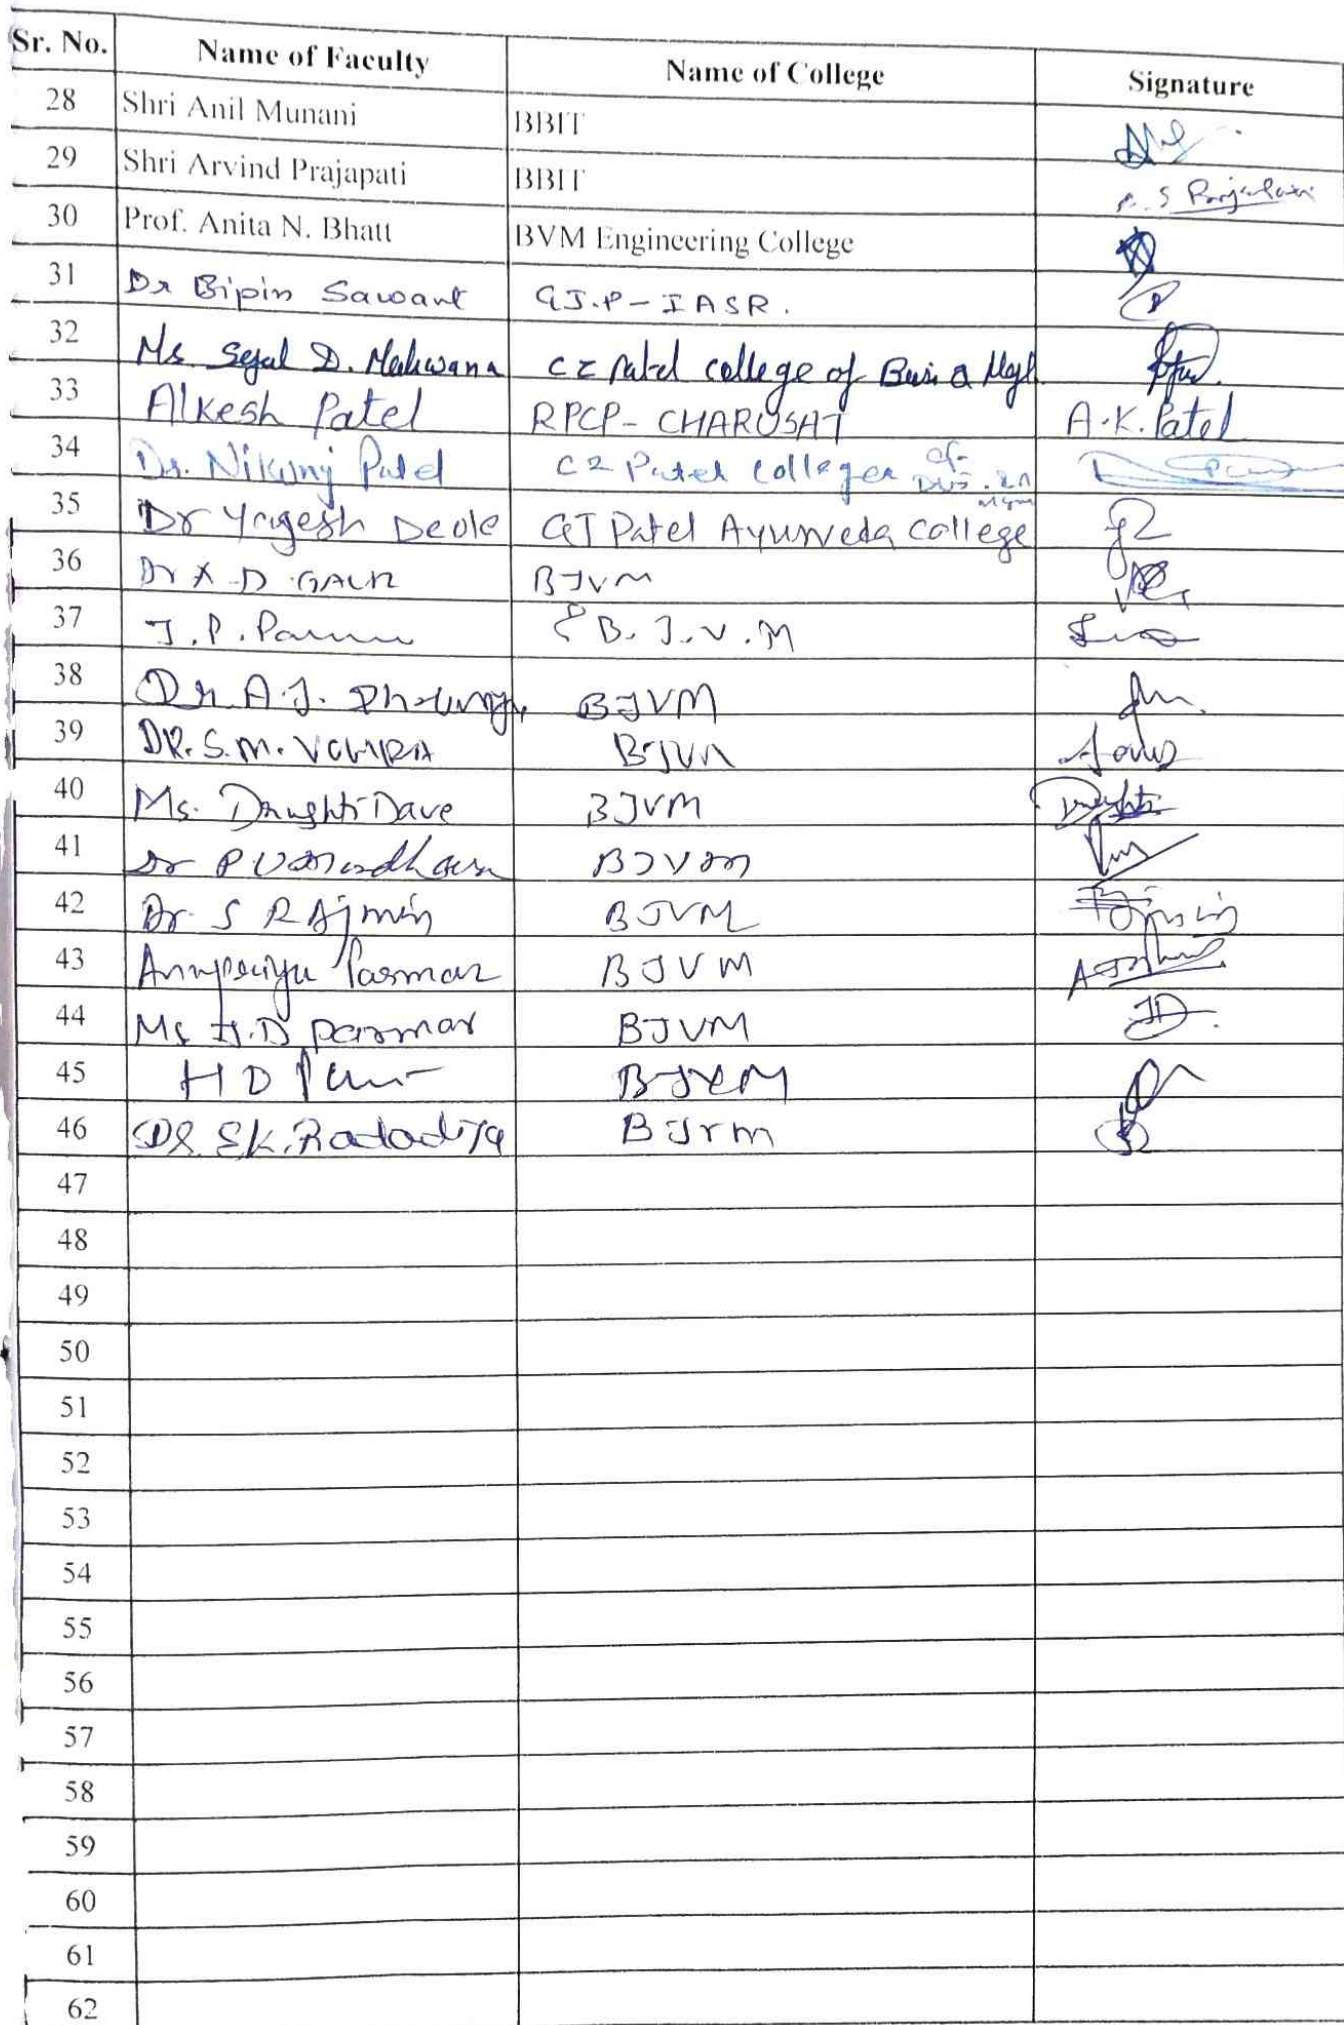 Sr. No. Name of Faculty Name of College Signature
28 Shri Anil Munani BBIT
29 Shri Arvind Prajapati BBIT
30 Prof. Anita N. Bhatt BVM Engineering College
31 Dr Bipin Sawant GJ.P-IASR.
32 Ms Sejal D. Makwana CZ Patel college of Busi & Mgt
33 Alkesh Patel RPCP-CHARUSAT A.K.Patel
34 Dr. Nikunj Patel CZ Patel College of
35 Dr Yogesh Deole GJ Patel Ayurveda College
36 Dr D. GAUR BJVM
37 J.P. B.J.V.M
38 Dr A.J. BJVM
39 DR. S.M. VOHRA BJVM
40 Ms. Drushti Dave BJVM
41 Dr P BJVM
42 Dr. S R Ajmeri BJVM
43 Parmar BJVM
44 Ms H.D parmar BJVM
45 H D BJVM
46 DR. S.K. Radadiya BJVM
47
48
49
50
51
52
53
54
55
56
57
58
59
60
61
62